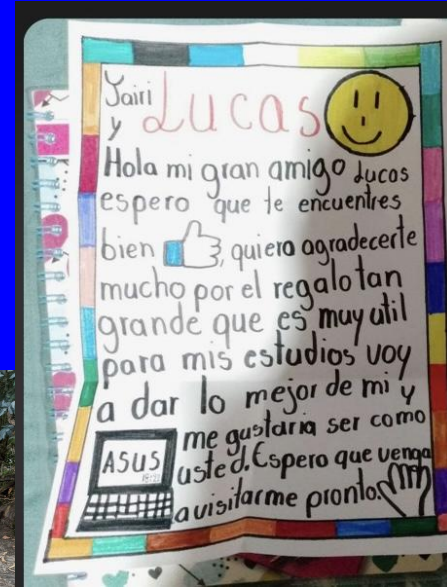 Yairi
y Lucas
Hola mi gran amigo Lucas
espero que te encuentres
bien , quiero agradecerte
mucho por el regalo tan
grande que es muy util
para mis estudios voy
a dar lo mejor de mi y
me gustaria ser como
usted. Espero que venga
a visitarme pronto.
ASUS